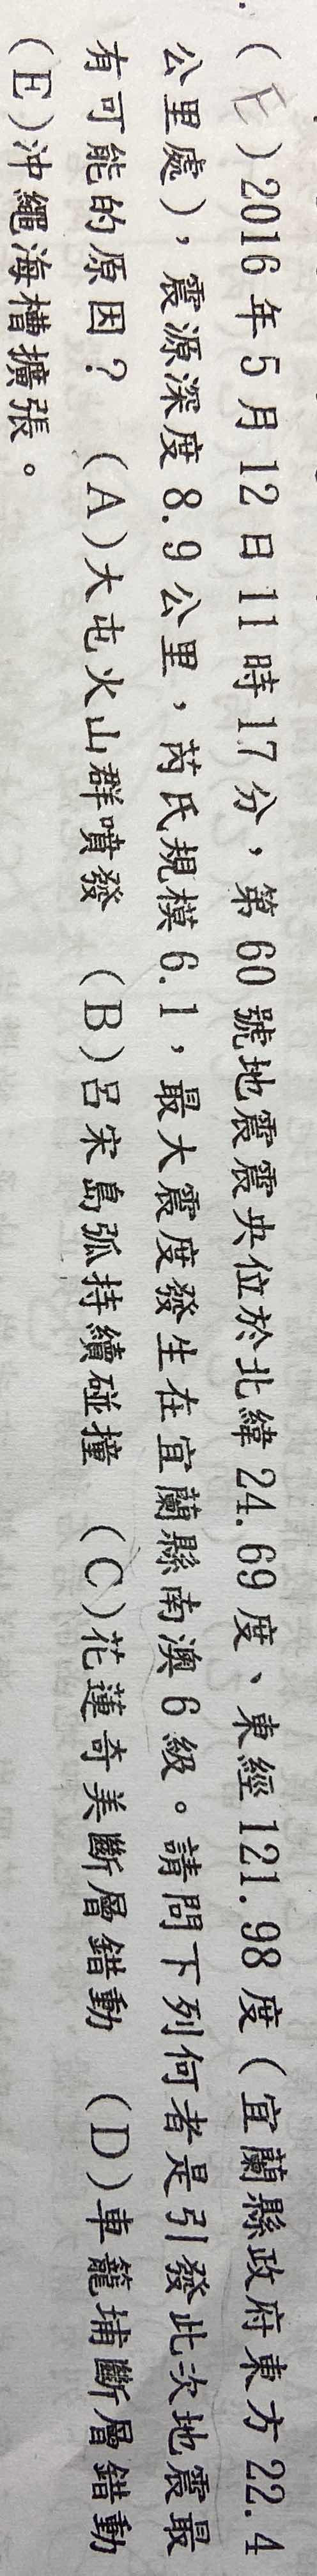 (E)2016年5月12日11時17分，第60號地震震央位於北緯24.69度、東經121.98度(宜蘭縣政府東方22.4
公里處)，震源深度8.9公里，芮氏規模6.1，最大震度發生在宜蘭縣南澳6級。請問下列何者是引發此次地震最
有可能的原因？ (A)大屯火山群噴發 (B)呂宋島弧持續碰撞 (C)花蓮奇美斷層錯動 (D)車籠埔斷層錯動
(E)沖繩海槽擴張。